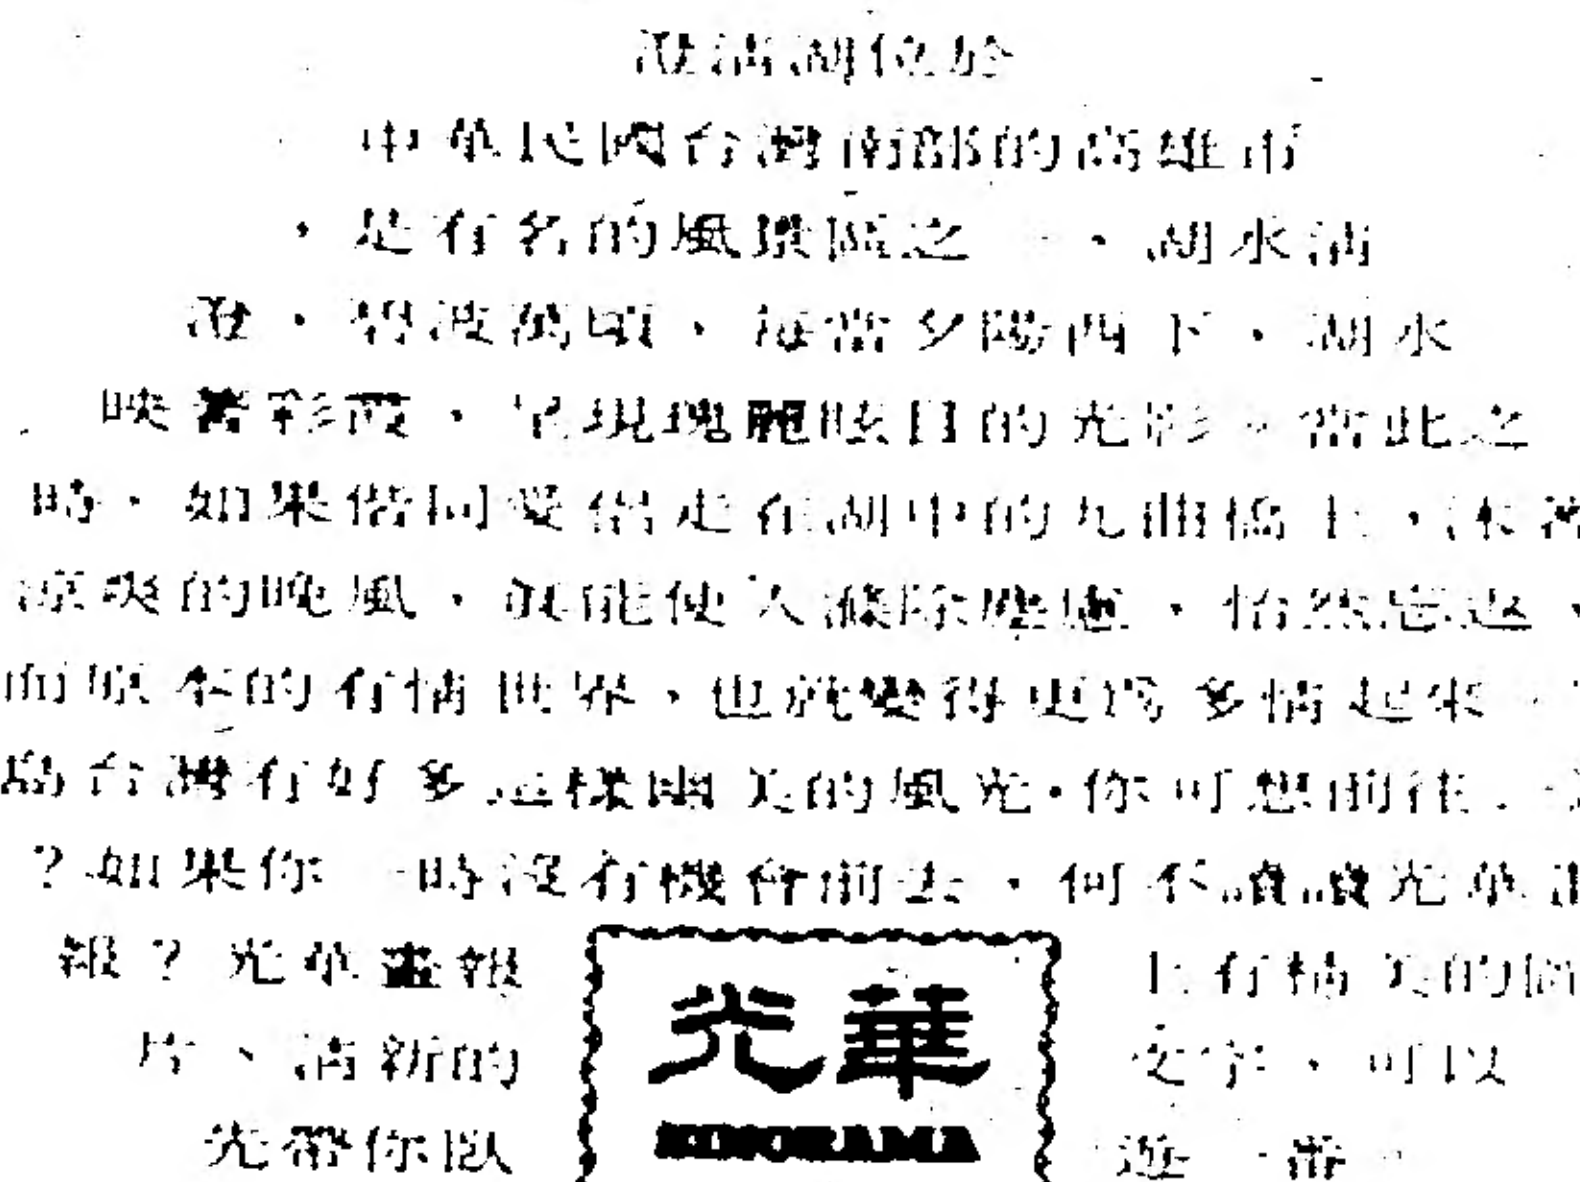 澄清湖位於
中華民國台灣南部的高雄市
，是有名的風景區之一、湖水清
澄，碧波萬頃，每當夕陽西下，湖水
映著彩霞，呈現瑰麗眩目的光影。當此之
時，如果偕同愛侶走在湖中的九曲橋上，沐著
涼爽的晚風，眞能使人滌除塵慮，怡然忘返，
而原本的有情世界，也就變得更爲多情起來。
台灣有好多這樣幽美的風光，你可想前往
？如果你一時沒有機會前去，何不讀讀光華畫
報？光華畫報
上有精美的圖
片、清新的
文字，可以
先帶你臥
遊一番。
光華
SINORAMA